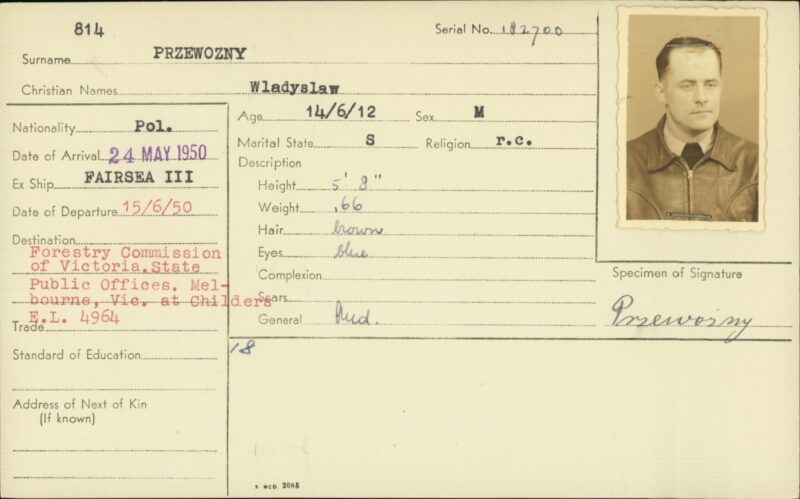 814
Serial No. 182700
Surname PRZEWOZNY
Christian Names Wladyslaw
Nationality Pol.
Date of Arrival 24 MAY 1950
Ex Ship FAIRSEA III
Date of Departure 15/6/50
Destination
Forestry Commission
of Victoria.State
Public Offices. Mel-
bourne, Vic. at Childers
E.L. 4964
Trade
Standard of Education
Address of Next of Kin
(If known)
Age 14/6/12 Sex M
Marital State S Religion r.c.
Description
Height 5' 8"
Weight .66
Hair brown
Eyes blue
Complexion
Scars
General Med.
18
Specimen of Signature
Przewozny
5 MCD 2085